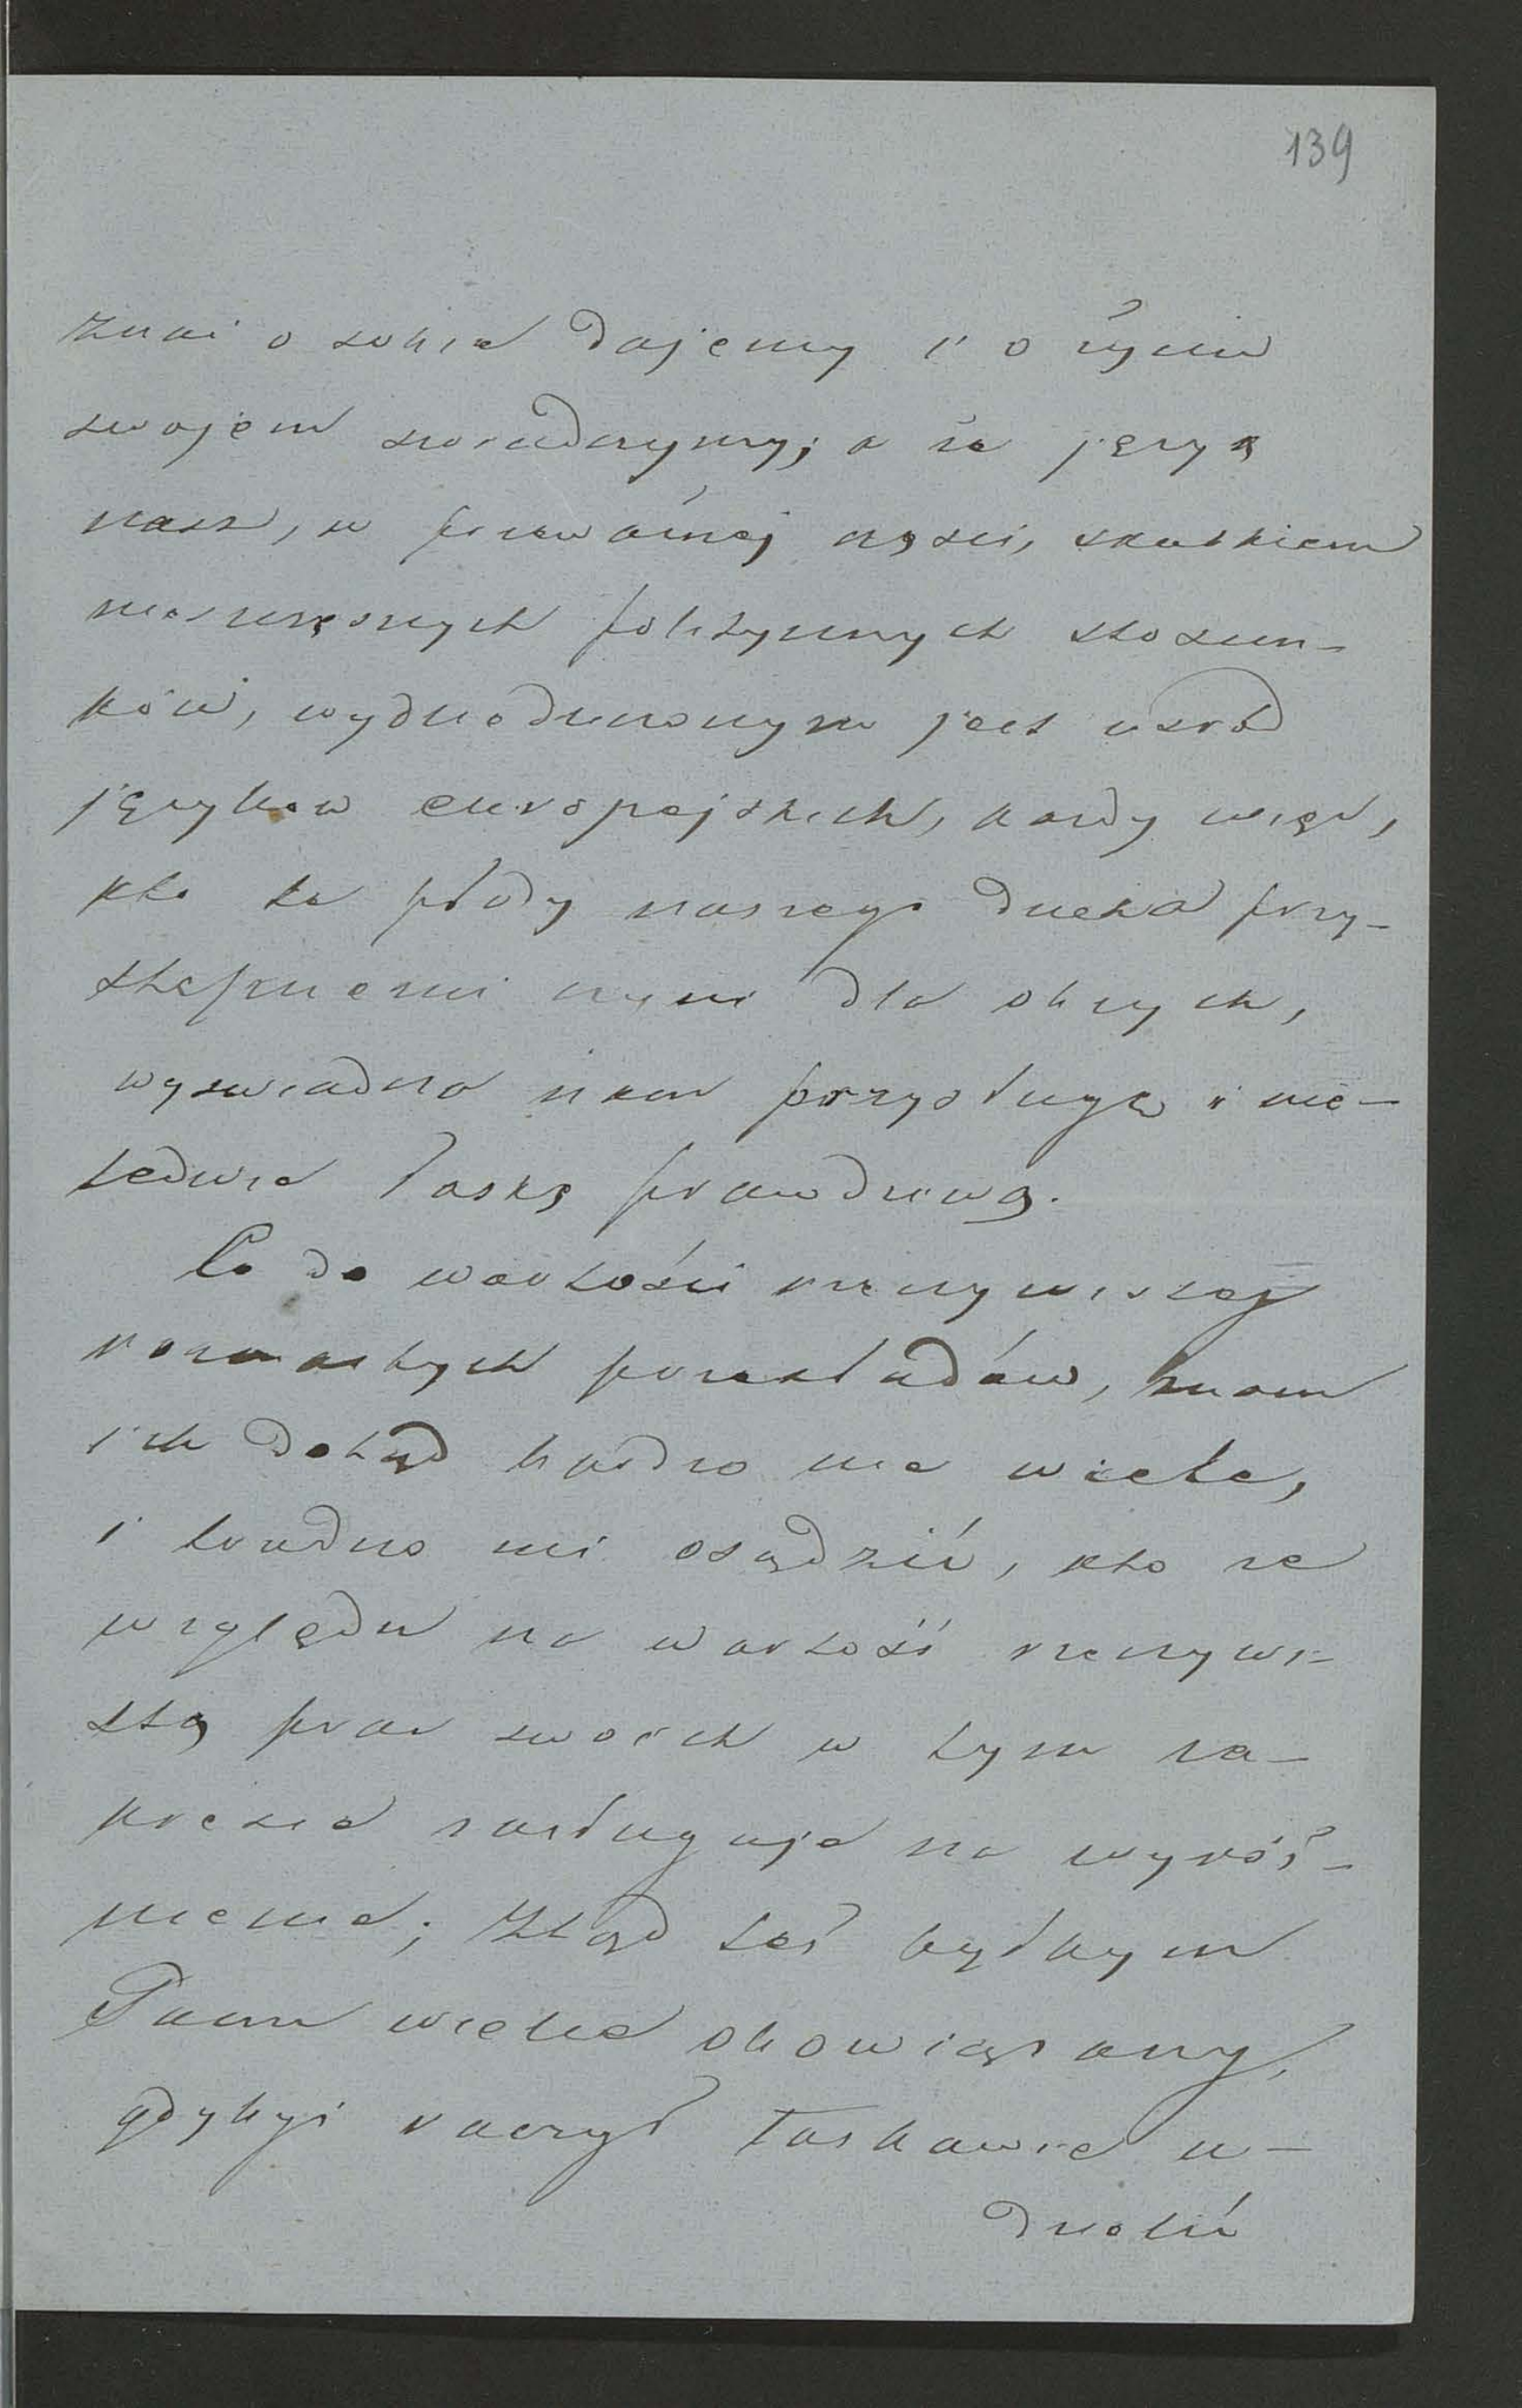 139
znać o sobie dajemy i o życiu
swojem świadczymy; a że język
nasz, w przeważnej części, skutkiem
nieszczęsnych politycznych stosun-
ków, wydziedziczonym jest wśród
języków europejskich, każdy więc,
kto te płody naszego ducha przy-
stępnemi czyni dla obcych,
wyświadcza nam przysługę i nie-
ledwie łaskę prawdziwą.
Co do wartości rzeczywistej
rozmaitych przekładów, znam
ich dotąd bardzo nie wiele,
i trudno mi osądzić, kto ze
względu na wartość rzeczywi-
stą prac swoich w tym za-
kresie zasługuje na wyróż-
nienie; ztąd też byłbym
Panu wielce obowiązany,
gdybyś raczył łaskawie u-
dzielić